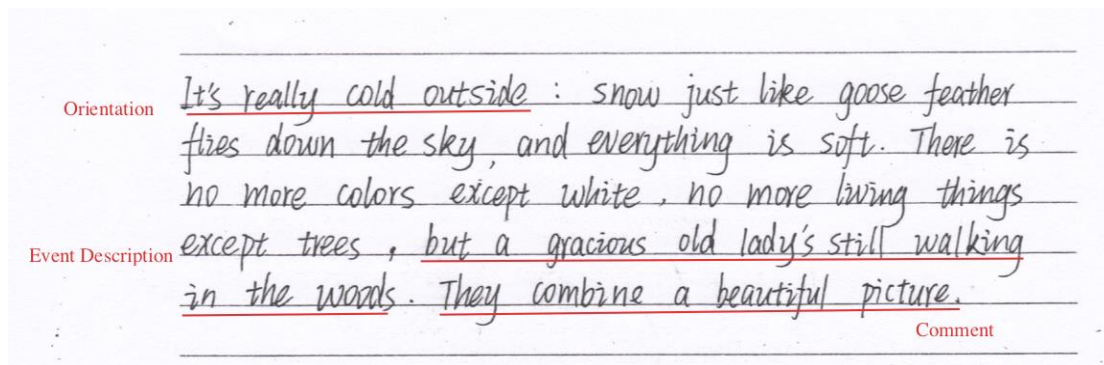 Orientation It's really cold outside : snow just like goose feather
flies down the sky, and everything is soft. There is
no more colors except white, no more living things
Event Description except trees, but a gracious old lady's still walking
in the woods. They combine a beautiful picture.
Comment